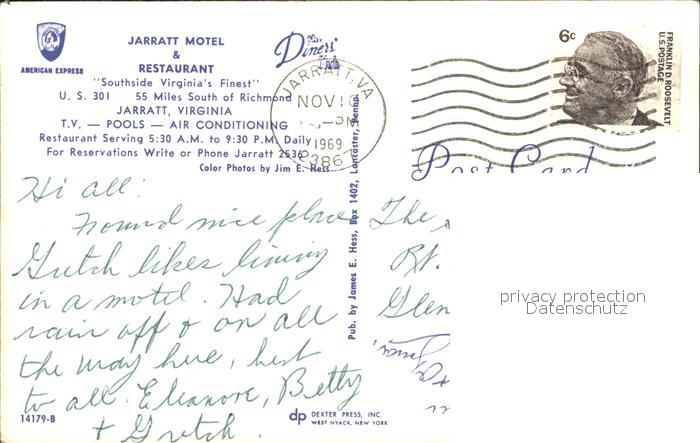 AMERICAN EXPRESS
JARRATT MOTEL
&
RESTAURANT
"Southside Virginia's Finest"
U. S. 301 55 Miles South of Richmond
JARRATT, VIRGINIA
T.V. — POOLS — AIR CONDITIONING
Restaurant Serving 5:30 A.M. to 9:30 P.M. Daily
For Reservations Write or Phone Jarratt 2536
Color Photos by Jim E. Hess
Diners' Club
JARRATT, VA
NOV 10
PM
1969
6c
FRANKLIN D. ROOSEVELT
U.S. POSTAGE
Post Card
Hi all:
Found nice place
Gretch likes living
in a motel. Had
rain off & on all
the way here, best
to all. Eleanore, Betty
+ Gretch.
Pub. by James E. Hess, Box 1402, Lancaster, Penna.
The
Rt.
Glen
privacy protection
Datenschutz
14179-B
dp DEXTER PRESS, INC.
WEST NYACK, NEW YORK